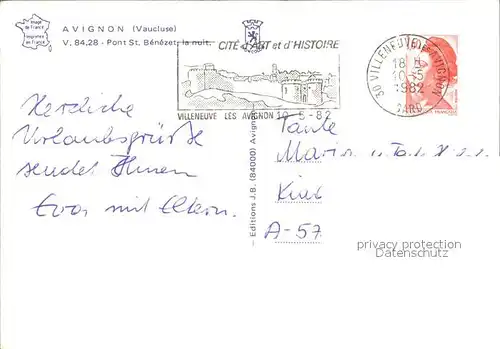 image de France
imprimée en France
AVIGNON (Vaucluse)
V. 84.28 - Pont St. Bénézet, la nuit.
CITÉ d'ART et d'HISTOIRE
VILLENEUVE LES AVIGNON 10-5-82
30 VILLENEUVE LES AVIGNON
18 H
10-5
1982
GARD
Herzliche
Urlaubsgrüße
sendet Ihnen
Eva mit Eltern.
Editions J.B. (84000) Avignon
Tante
A-57
privacy protection
Datenschutz